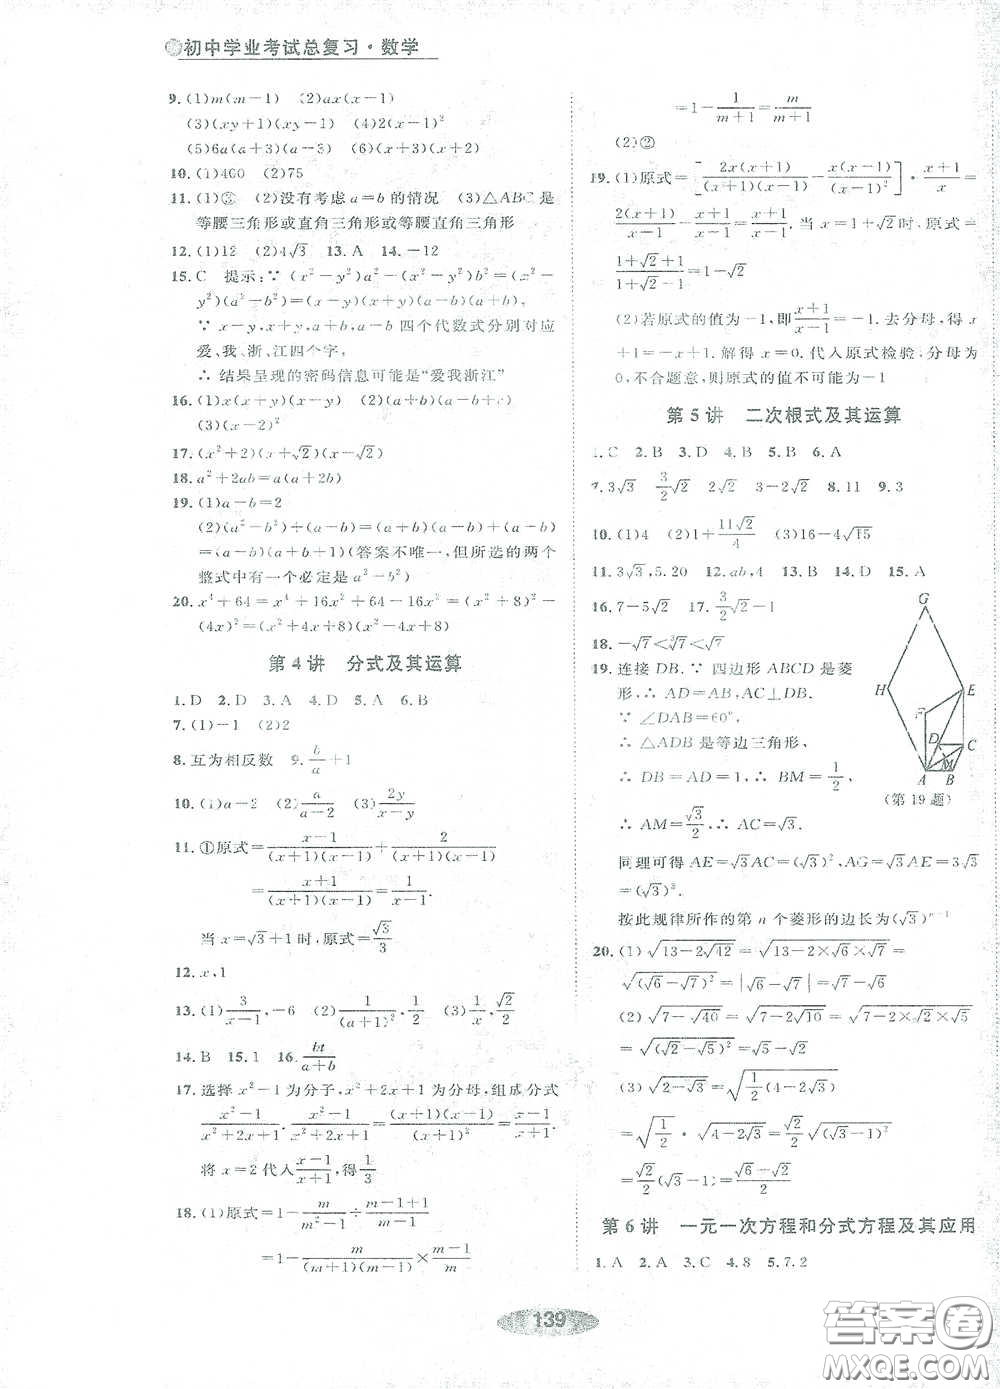 初中学业考试总复习·数学
9.(1)m(m－1)　(2)ax(x－1)
(3)(xy＋1)(xy－1)　(4)2(x－1)²
(5)6a(a＋3)(a－3)　(6)(x＋3)(x＋2)
10.(1)400　(2)75
11.(1)③　(2)没有考虑a＝b的情况　(3)△ABC是
等腰三角形或直角三角形或等腰直角三角形
12.(1)12　(2)4√3　13.A　14.－12
15.C　提示:∵(x²－y²)a²－(x²－y²)b²＝(x²－
y²)(a²－b²)＝(x－y)(x＋y)(a－b)(a＋b),
∵x－y,x＋y,a＋b,a－b四个代数式分别对应
爱、我、浙、江四个字,
∴结果呈现的密码信息可能是“爱我浙江”
16.(1)x(x＋y)(x－y)　(2)(a＋b)(a＋b－c)
(3)(x－2)²
17.(x²＋2)(x＋√2)(x－√2)
18.a²＋2ab＝a(a＋2b)
19.(1)a－b＝2
(2)(a²－b²)÷(a－b)＝(a＋b)(a－b)÷(a－b)
＝(a＋b)(答案不唯一,但所选的两个
整式中有一个必定是a²－b²)
20.x⁴＋64＝x⁴＋16x²＋64－16x²＝(x²＋8)²－
(4x)²＝(x²＋4x＋8)(x²－4x＋8)
第4讲　分式及其运算
1.D　2.D　3.A　4.D　5.A　6.B
7.(1)－1　(2)2
8.互为相反数　9.b/a＋1
10.(1)a－2　(2)a/(a－2)　(3)2y/(x－y)
11.①原式＝(x－1)/((x＋1)(x－1))＋2/((x＋1)(x－1))
＝(x＋1)/((x＋1)(x－1))＝1/(x－1).
当x＝√3＋1时,原式＝√3/3
12.x,1
13.(1)3/(x－1),－6　(2)1/(a＋1)²,1/2　(3)1/x,√2/2
14.B　15.1　16.bt/(a＋b)
17.选择x²－1为分子,x²＋2x＋1为分母,组成分式
(x²－1)/(x²＋2x＋1).(x²－1)/(x²＋2x＋1)＝(x＋1)(x－1)/(x＋1)²＝(x－1)/(x＋1).
将x＝2代入(x－1)/(x＋1),得1/3
18.(1)原式＝1－m/(m²－1)÷(m－1＋1)/(m－1)
＝1－m/((m＋1)(m－1))·(m－1)/m
＝1－1/(m＋1)＝m/(m＋1)
(2)②
19.(1)原式＝[2x(x＋1)/((x＋1)(x－1))－x(x－1)/(x－1)²]·(x＋1)/x＝
(2x/(x－1)－x/(x－1))·(x＋1)/x＝(x＋1)/(x－1).当x＝1＋√2时,原式＝
(1＋√2＋1)/(1＋√2－1)＝1＋√2
(2)若原式的值为－1,即(x＋1)/(x－1)＝－1.去分母,得x
＋1＝－x＋1.解得x＝0.代入原式检验,分母为
0,不合题意,则原式的值不可能为－1
第5讲　二次根式及其运算
1.C　2.B　3.D　4.B　5.B　6.A
7.3√3　3/2√2　2√2　3－2√2　8.11　9.3
10.(1)4　(2)1＋11√2/4　(3)16－4√15
11.3√3,5.20　12.ab,4　13.B　14.D　15.A
16.7－5√2　17.3/2√2－1
18.－√7＜∛7＜√7
19.连接DB.∵四边形ABCD是菱
形,∴AD＝AB,AC⊥DB.
∵∠DAB＝60°,
∴△ADB是等边三角形,
∴DB＝AD＝1,∴BM＝1/2,
∴AM＝√3/2,∴AC＝√3.
同理可得AE＝√3AC＝(√3)²,AG＝√3AE＝3√3
＝(√3)³.
按此规律所作的第n个菱形的边长为(√3)ⁿ⁻¹
G
H
E
F
D
C
M
A
B
(第19题)
20.(1)√(13－2√42)＝√(13－2×√6×√7)＝
√((√6－√7)²)＝|√6－√7|＝√7－√6
(2)√(7－√40)＝√(7－2√10)＝√(7－2×√2×√5)
＝√((√2－√5)²)＝√5－√2
(3)√(2－√3)＝√(1/2(4－2√3))
＝√(1/2)·√(4－2√3)＝√2/2√((√3－1)²)
＝√2/2(√3－1)＝(√6－√2)/2
第6讲　一元一次方程和分式方程及其应用
1.A　2.A　3.C　4.8　5.7.2
139
答案圈
MXQE.COM